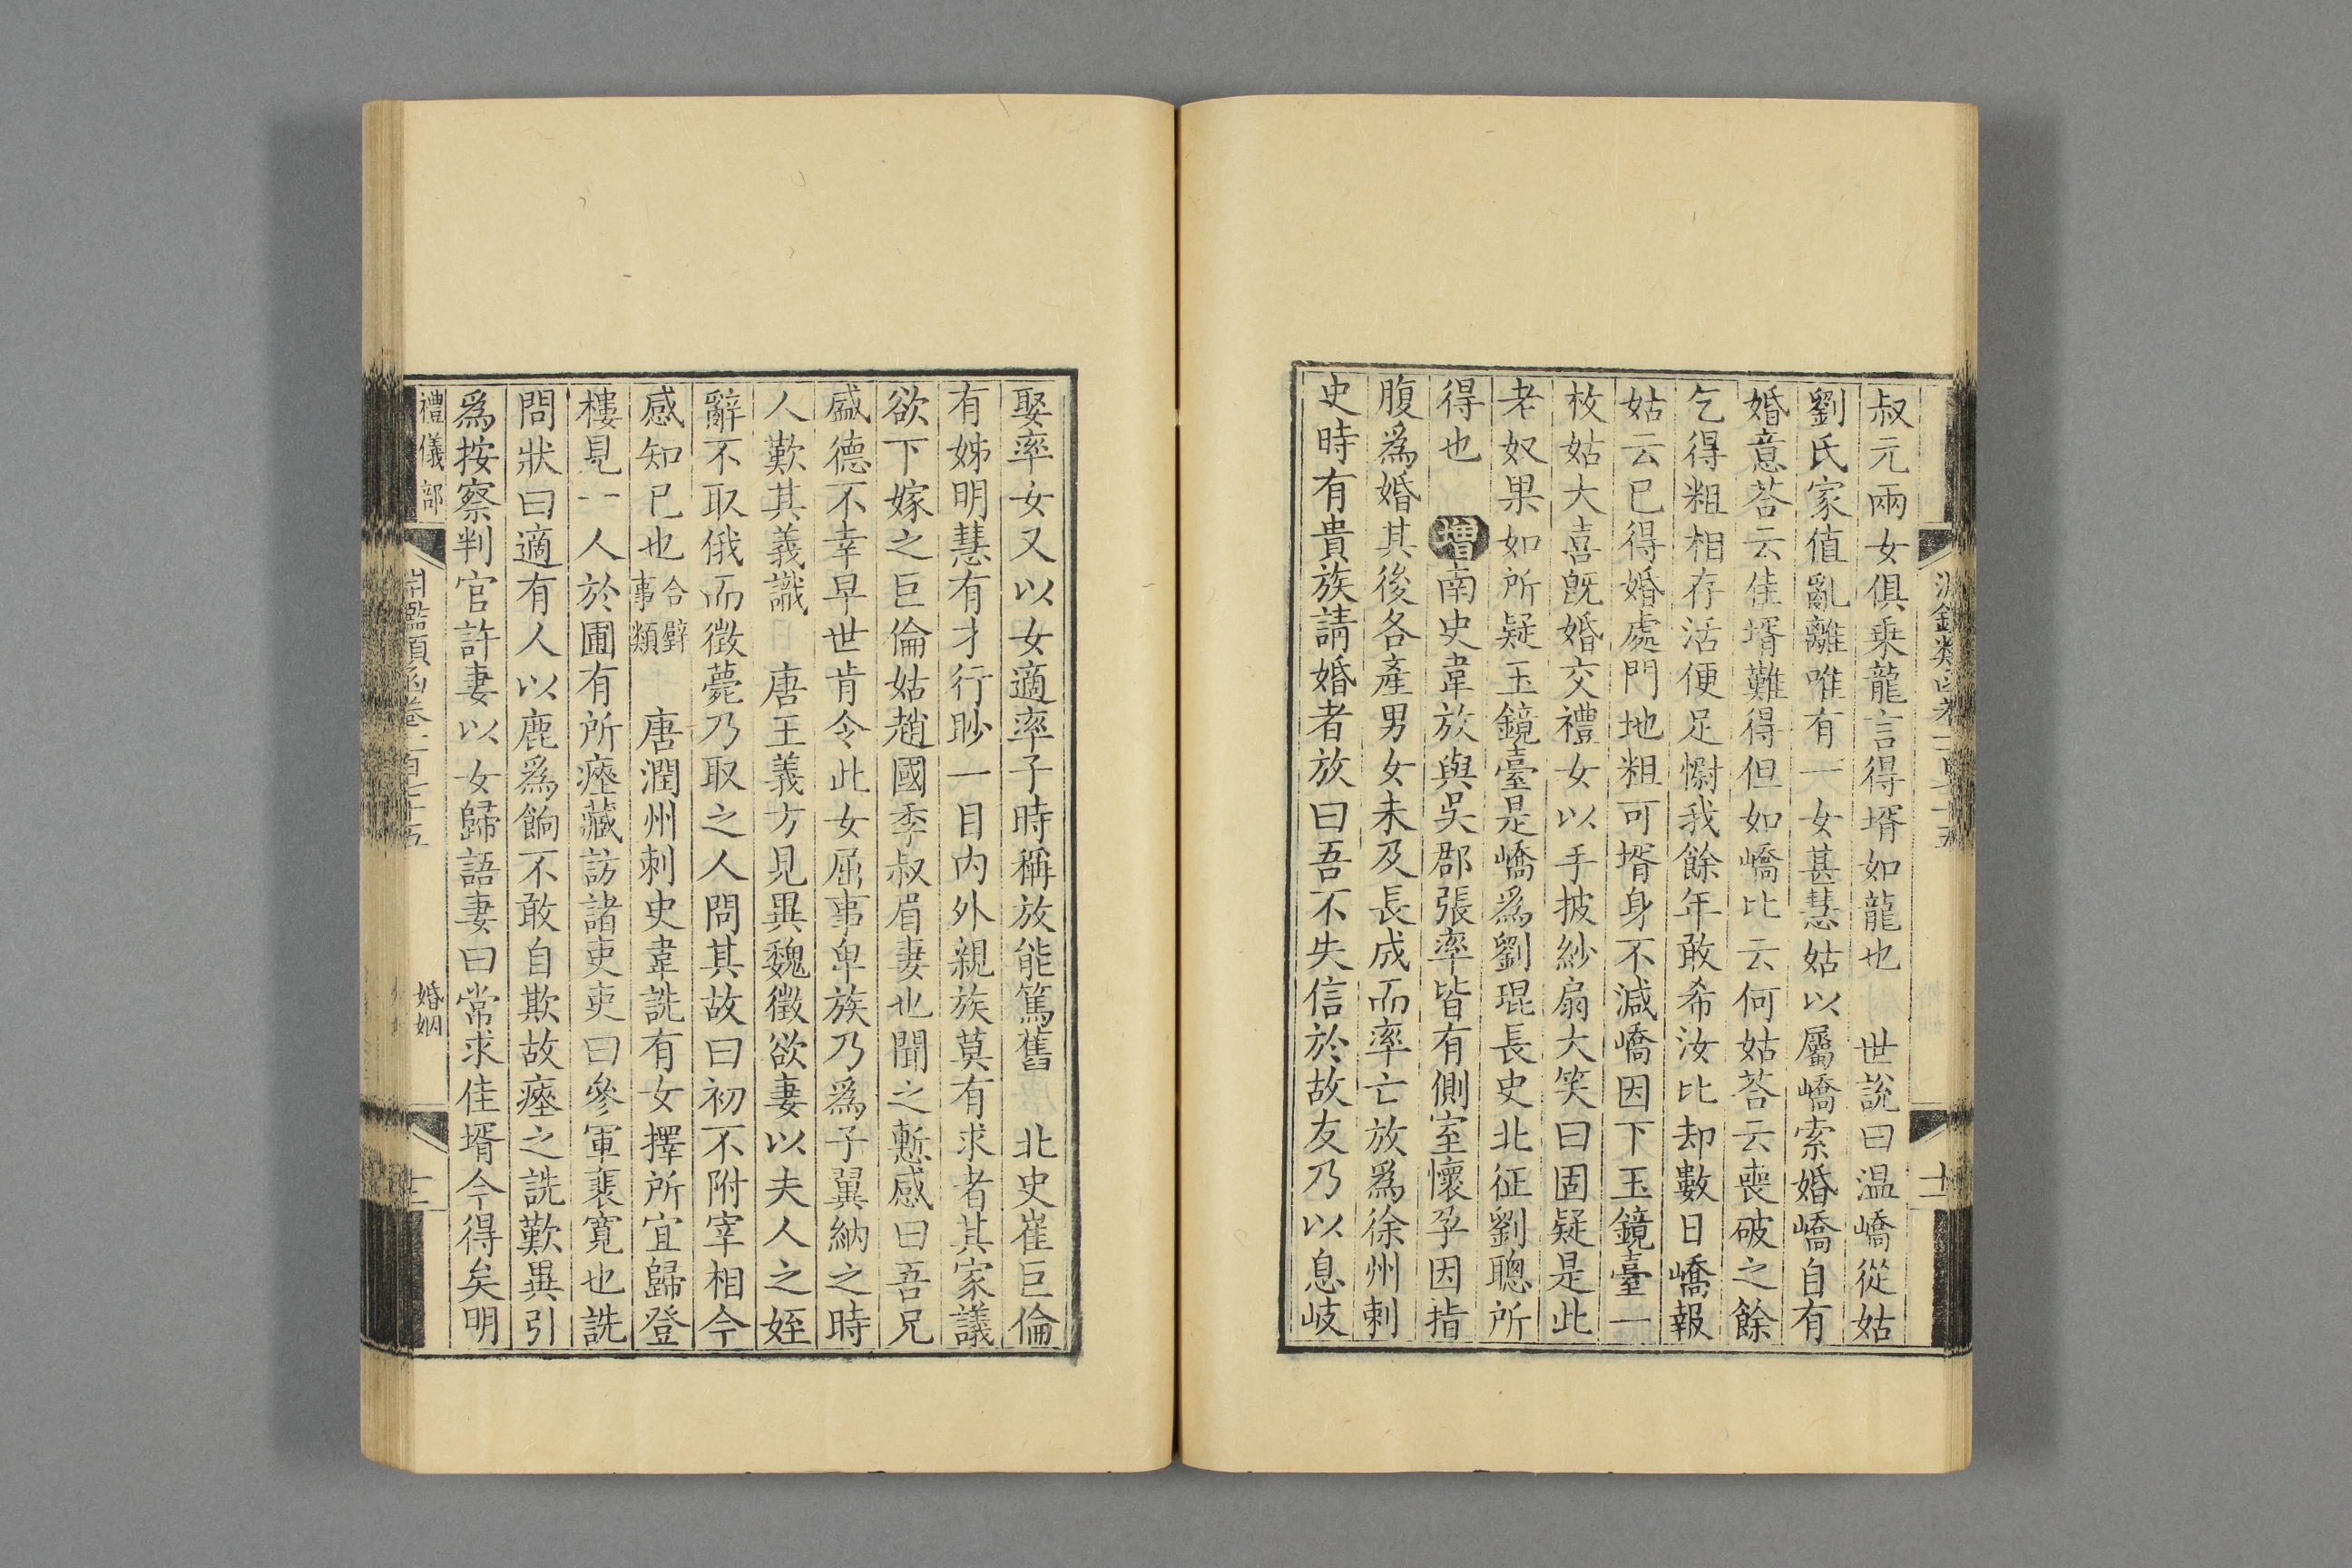 叔元兩女俱乘龍言得壻如龍也 世說曰温嶠從姑
劉氏家值亂離唯有一女甚慧姑以屬嶠索婚嶠自有
婚意荅云佳壻難得但如嶠比云何姑荅云喪破之餘
乞得粗相存活便足慰我餘年敢希汝比却數日嶠報
姑云已得婚處門地粗可壻身不減嶠因下玉鏡臺一
枚姑大喜旣婚交禮女以手披紗扇大笑曰固疑是此
老奴果如所疑玉鏡臺是嶠爲劉琨長史北征劉聰所
得也 增南史韋放與吳郡張率皆有側室懷孕因指
腹爲婚其後各產男女未及長成而率亡放爲徐州刺
史時有貴族請婚者放曰吾不失信於故友乃以息岐
娶率女又以女適率子時稱放能篤舊 北史崔巨倫
有姊明慧有才行眇一目内外親族莫有求者其家議
欲下嫁之巨倫姑趙國李叔眉妻也聞之慙感曰吾兄
盛德不幸早世肯令此女屈事卑族乃爲子翼納之時
人歎其義識 唐王義方見異魏徵欲妻以夫人之姪
辭不取俄而徵薨乃取之人問其故曰初不附宰相今
感知已也合璧事類 唐潤州刺史韋詵有女擇所宜歸登
樓見一人於圃有所瘞藏訪諸吏吏曰參軍裴寬也詵
問狀曰適有人以鹿爲餉不敢自欺故瘞之詵歎異引
爲按察判官許妻以女歸語妻曰常求佳壻今得矣明
禮儀部 婚姻